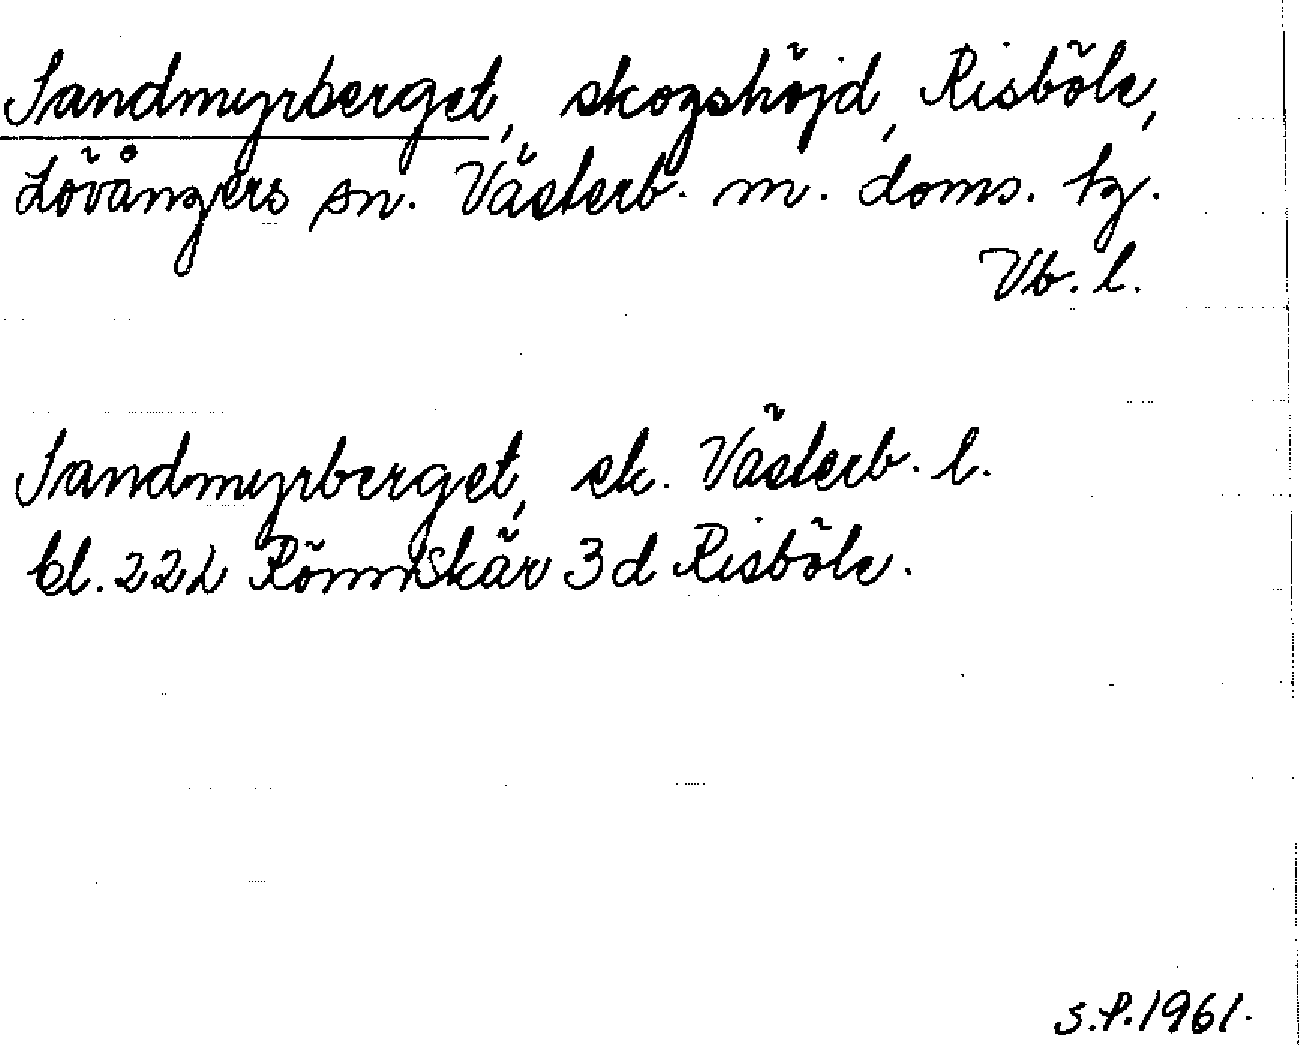 Sandmyrberget, skogshöjd, Risböle,
Lövångers sn. Västerb. m. doms. tg.
Vb. l.
Sandmyrberget, ek. Västerb. l.
bl. 22L Rönnskär 3d Risböle.
S.P.1961.